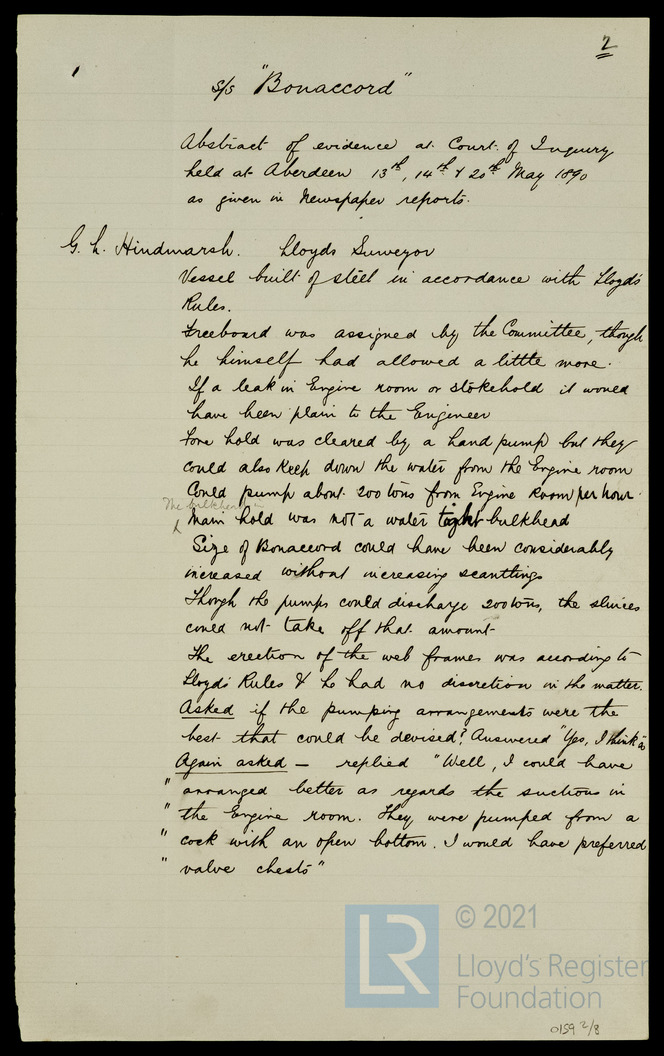 2
1
s/s "Bonaccord"
Abstract of evidence at Court of Inquiry
held at Aberdeen 13th, 14th & 20th May 1890
as given in Newspaper reports.
G. L. Hindmarsh. Lloyds Surveyor
Vessel built of steel in accordance with Lloyd's
Rules.
Freeboard was assigned by the Committee, though
he himself had allowed a little more.
If a leak in Engine room or stokehold it would
have been plain to the Engineer
Fore hold was cleared by a hand pump but they
could also keep down the water from the Engine room
Could pump about 200 tons from Engine Room per hour.
The bulkhead in
Main hold was not a water tight bulkhead
Size of Bonaccord could have been considerably
increased without increasing scantlings
Though the pumps could discharge 200 tons, the sluices
could not take off that amount
The erection of the web frames was according to
Lloyd's Rules & he had no discretion in the matter.
Asked if the pumping arrangements were the
best that could be devised? Answered "Yes, I think so
Again asked — replied "Well, I could have
" arranged better as regards the suctions in
" the Engine room. They were pumped from a
" cock with an open bottom. I would have preferred
" valve chests"
LR © 2021
Lloyd's Register
Foundation
0159 2/8